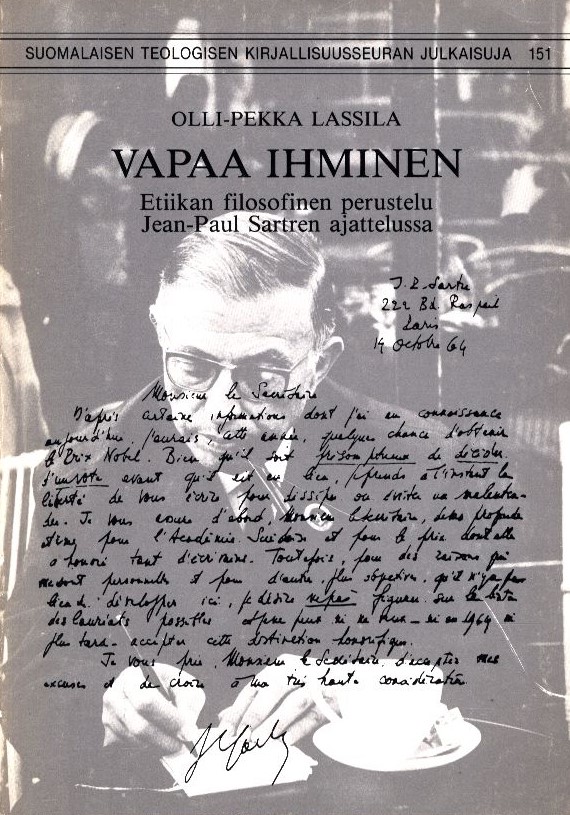 SUOMALAISEN TEOLOGISEN KIRJALLISUUSSEURAN JULKAISUJA 151
OLLI-PEKKA LASSILA
VAPAA IHMINEN
Etiikan filosofinen perustelu
Jean-Paul Sartren ajattelussa
J.P. Sartre
222 Bd. Raspail
Paris
14 Octobre 64
Monsieur le Secrétaire
D'après certaines informations dont j'ai eu connaissance
aujourd'hui j'aurais, cette année, quelques chances d'obtenir
le Prix Nobel. Bien qu'il soit présomptueux de décider
d'un vote avant qu'il ait eu lieu, je prends à l'instant la
liberté de vous écrire pour dissiper ou éviter un malenten-
du. Je vous assure d'abord, Monsieur le Secrétaire, de ma profonde
estime pour l'Académie Suédoise et pour le prix dont elle
a honoré tant d'écrivains. Toutefois, pour des raisons qui
me sont personnelles et pour d'autres plus objectives, qu'il n'y a pas
lieu de développer ici, je désire ne pas figurer sur la liste
des lauréats possibles et je ne peux ni ne veux - ni en 1964 ni
plus tard - accepter cette distinction honorifique.
Je vous prie, Monsieur le Secrétaire, d'accepter mes
excuses et de croire à ma très haute considération